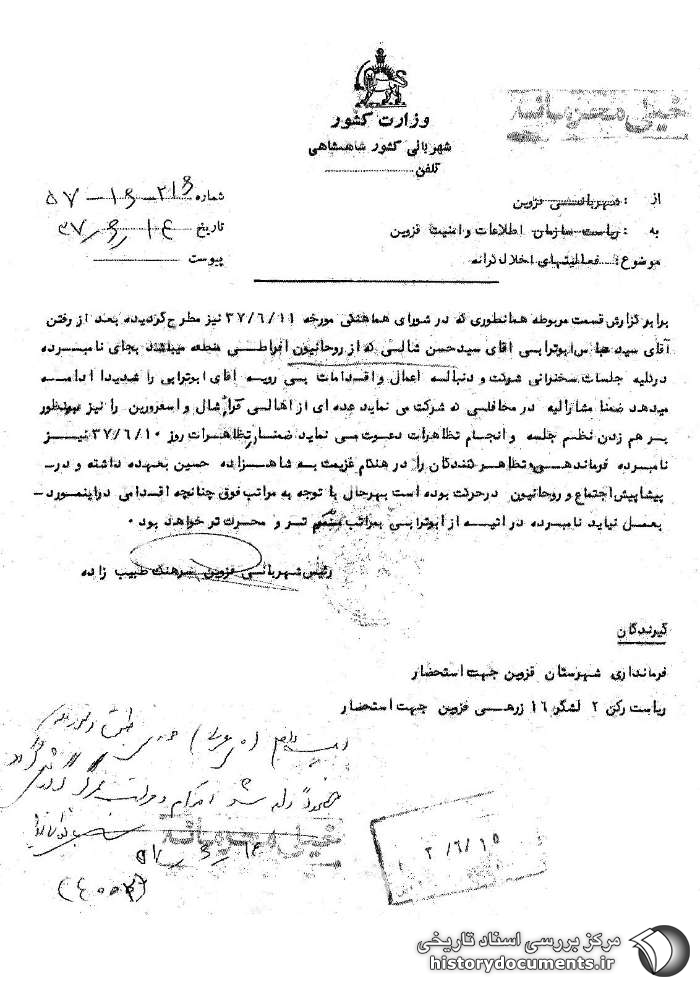 وزارت کشور
شهربانی کشور شاهنشاهی
تلفن
خیلی محرمانه
از : شهربانی قزوین
به : ریاست سازمان اطلاعات و امنیت قزوین
موضوع : فعالیتهای اخلال گرانه
شماره
تاریخ
پیوست
برابر گزارش قسمت مربوطه همانطوری که در شورای هماهنگی مورخه ۳۷/۶/۱۱ نیز مطرح گردیده بعد از رفتن
آقای سید عباس ابوترابی آقای سید حسن شالی که از روحانیون افراطی منطقه میباشد بجای نامبرده
در کلیه جلسات سخنرانی شرکت و دنباله اعمال و اقدامات بی رویه آقای ابوترابی را شدیدا ادامه
میدهد ضمنا مشارالیه در محافلی که شرکت می نماید عده ای از اهالی شال و اسفرورین را نیز بمنظور
بر هم زدن نظم جلسه و انجام تظاهرات دعوت می نماید ضمنا تظاهرات روز ۳۷/۶/۱۰ نیز
نامبرده فرماندهی تظاهر کنندگان را در هنگام عزیمت به شاهزاده حسین بعهده داشته و در
پیشاپیش اجتماع و روحانیون در حرکت بوده است بهرحال با توجه به مراتب فوق چنانچه اقدامی در اینمورد
بعمل نیاید نامبرده در آتیه از ابوترابی بمراتب تر و محرک تر خواهد بود ۰
رئیس شهربانی قزوین سرهنگ طبیب زاده
گیرندگان
فرمانداری شهرستان قزوین جهت استحضار
ریاست رکن ۲ لشگر ۱۶ زرهی قزوین جهت استحضار
خیلی محرمانه
۲ /۶/ ۱۵
مرکز بررسی اسناد تاریخی
historydocuments.ir